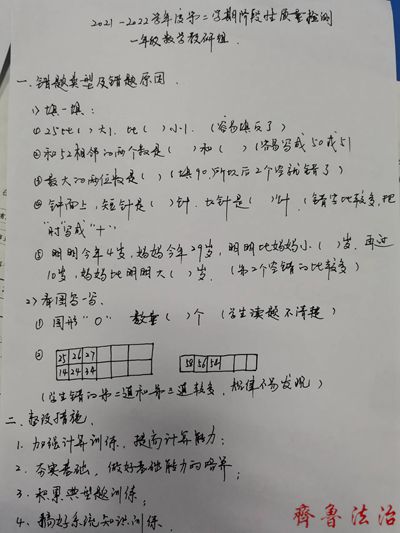 2021-2022学年度第二学期阶段性质量检测
一年级数学教研组.
一、错题类型及错题原因.
1) 填一填:
① 25比( )大1. 比( )小1. (容易填反了)
② 和52相邻的两个数是( )和( )(容易写成50或51
③ 最大的两位数是( )(填90,所以后2个空就错了)
④ 钟面上,短针是( )针. 长针是( )针 (错字比较多,把
"时"写成"十"
⑤ 明明今年4岁,妈妈今年29岁,明明比妈妈小( )岁. 再过
10岁,妈妈比明明大( )岁. (第2个空错的比较多)
2) 看图写一写.
① 图形"O" 数量( )个 (学生读题不清楚)
② 25 26 27 58 56 54
14 24 34
(学生错的第二道和第三道较多, 规律不易发现)
二、整改措施.
1. 加强计算训练, 提高计算能力;
2. 夯实基础, 做好基础能力的培养;
3. 积累典型题训练;
4. 搞好系统知识训练.
齐鲁法治